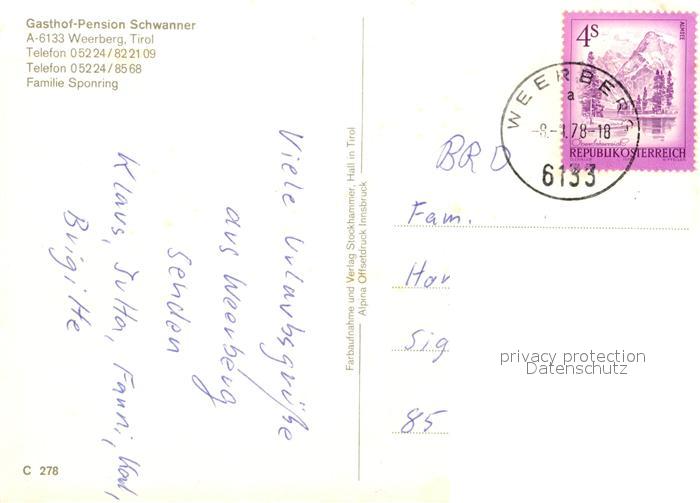 Gasthof-Pension Schwanner
A-6133 Weerberg, Tirol
Telefon 05224/822109
Telefon 05224/8568
Familie Sponring
Viele Urlaubsgrüße
aus Weerberg
senden
Klaus, Jutta, Fanni,
Brigitte
C 278
Farbaufnahme und Verlag Stockhammer, Hall in Tirol
Alpina Offsetdruck Innsbruck
4S
ALMSEE
REPUBLIK ÖSTERREICH
WEERBERG
a
78-18
6133
BRD
Fam.
Har
Sig
85
privacy protection
Datenschutz